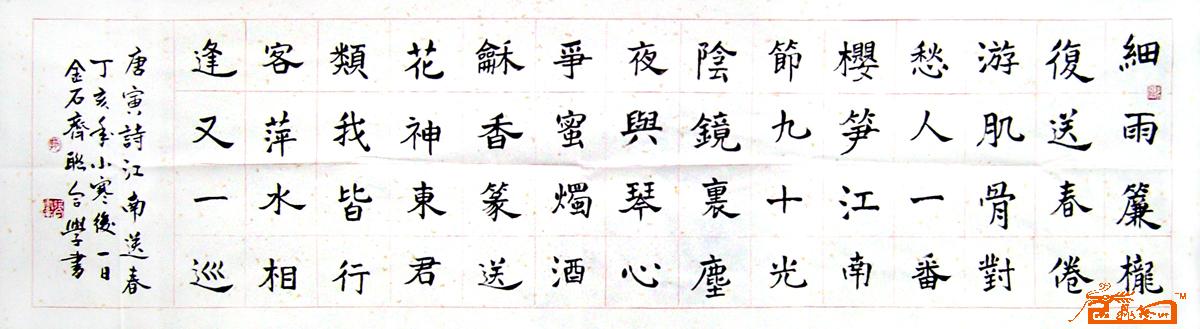 細雨簾櫳
復送春倦
游肌骨對
愁人一番
櫻笋江南
節九十光
陰鏡裏塵
夜與琴心
爭蜜燭酒
龢香篆送
花神東君
類我皆行
客萍水相
逢又一巡
唐寅詩江南送春
丁亥年小寒後一日
金石齋學書